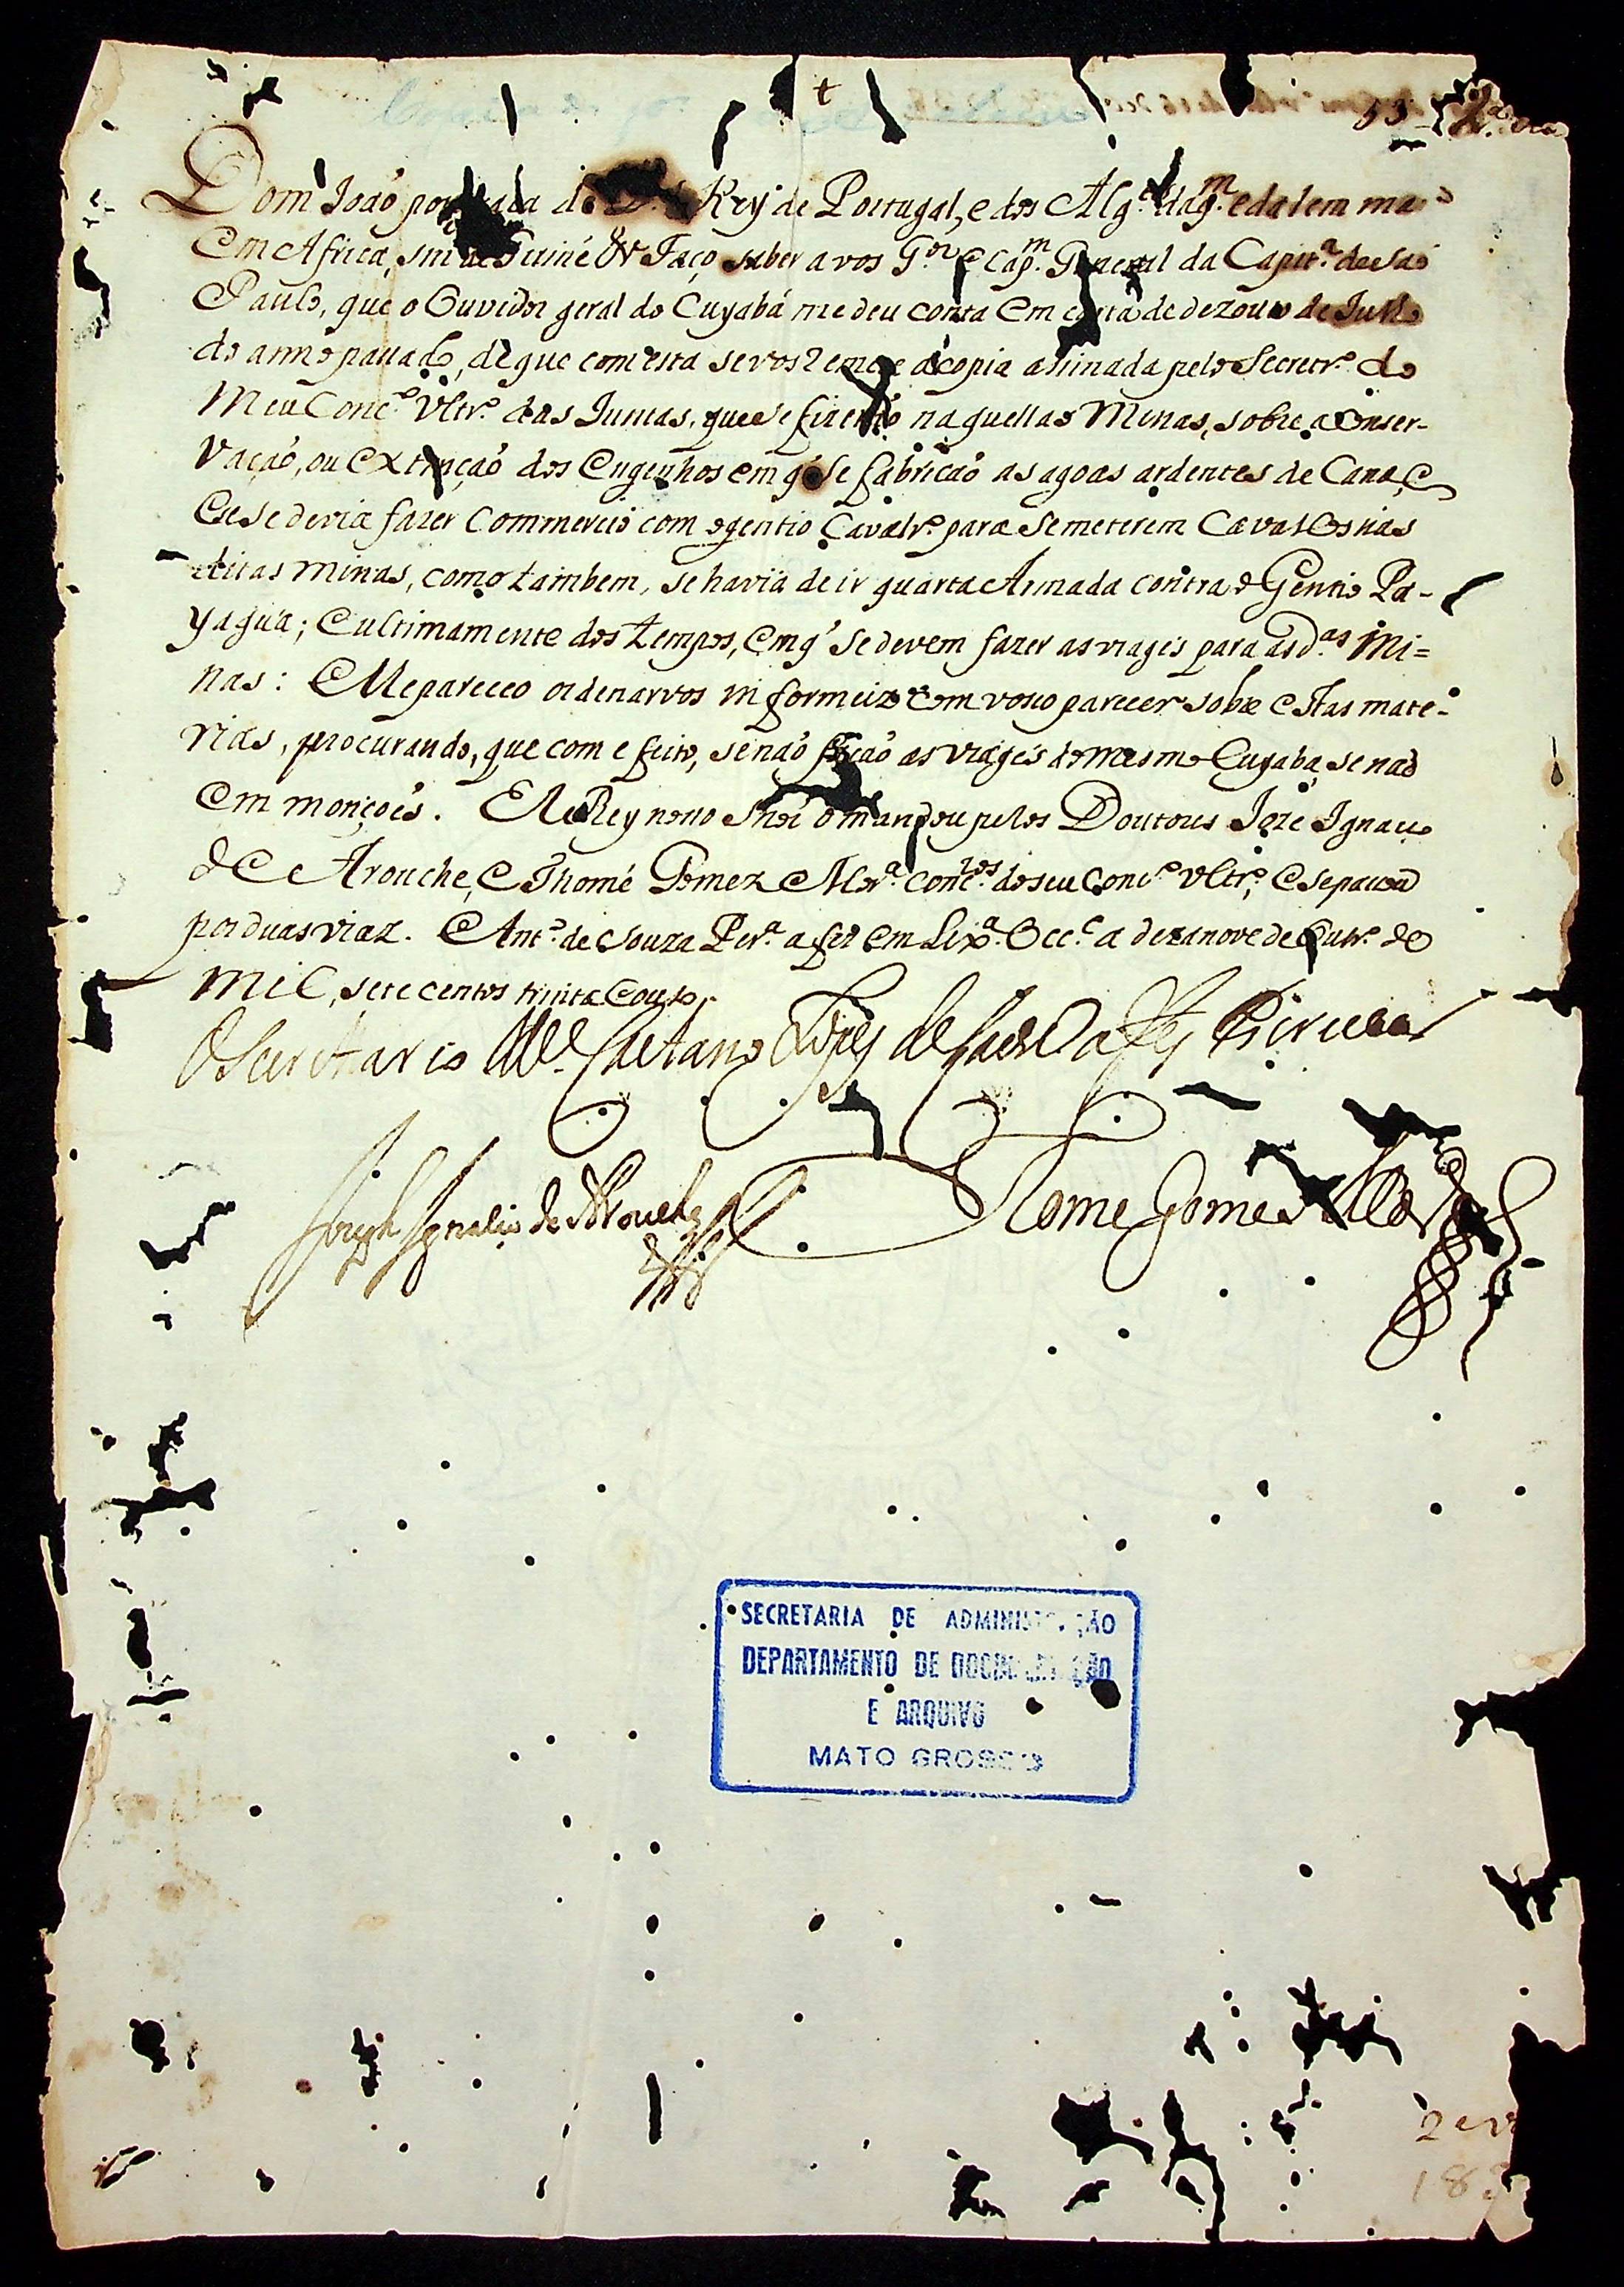 53
Dom João por graça de D.s Rey de Portugal, e dos Alg.es daq.m e dalem mar
em Africa, sn.r de Guiné &ª Faço saber a vos G.or e Cap.m General da Capit.ª de São
Paulo, que o Ouvidor geral do Cuyabá me deu conta em carta de dezouto de Julho
do anno passado, de que com esta se vos remete a copia assinada pelo Secretr.º do
Meu Cons.º Vltr.º das Juntas, que se fizerão naquellas Minas, sobre a conser-
vação, ou extinção dos engenhos em q́ se fabricão as agoas ardentes de Cana, e
e se devia fazer commercio com o gentio Cavalr.º para se meterem Cavallos nas
ditas minas, como tambem, se havia de ir guarta Armada contra o Gentio Pa-
yaguá; e ultimamente dos tempos, em q́ se devem fazer as viagẽs para as d.as Mi=
nas: Me pareceo ordenarvos informeiz com vosso parecer sobre estas mate-
rias, procurando, que com efeito, se não fação as viagẽs do mesmo Cuyabá, se não
em monçoẽs. El Rey nosso snõr o mandou pelos Doutores Joze Ignacio
de Arouche, e Thomé Gomez Mor.ª cons.ros do seu Cons.º Vltr.º, e se passou
por duas viaz. Ant.º de Souza Per.ª a fez em Lix.ª Occ.al a dezanove de Outr.º de
mil, sete centos trinta e outo.
O Secretario M.el Caetano Lopes de Lavre a fes escrever
Joseph Ignacio de Arouche
Thome Gomes Mor.ª
SECRETARIA DE ADMINISTRAÇÃO
DEPARTAMENTO DE DOCUMENTAÇÃO
E ARQUIVO
MATO GROSSO